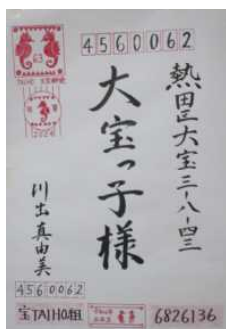 4560062
63
熱田区大宝三-八-四三
大宝っ子様
川出真由美
4560062
宝TAIHO組
6826136